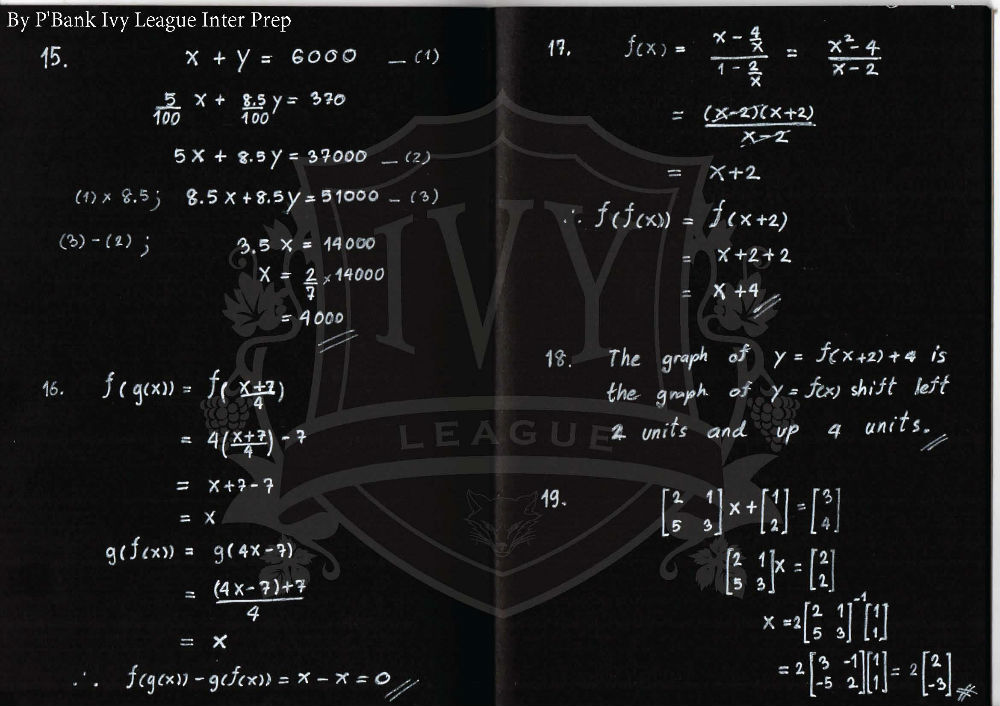 By P'Bank Ivy League Inter Prep
15. x + y = 6000 — (1)
5/100 x + 8.5/100 y = 370
5x + 8.5y = 37000 — (2)
(1) x 8.5; 8.5x + 8.5y = 51000 — (3)
(3) - (2); 3.5 x = 14000
x = 2/7 x 14000
= 4000
16. f(g(x)) = f((x+7)/4)
= 4((x+7)/4) - 7
= x+7-7
= x
g(f(x)) = g(4x-7)
= ((4x-7)+7)/4
= x
∴ f(g(x)) - g(f(x)) = x - x = 0
17. f(x) = (x - 4/x)/(1 - 2/x) = (x²-4)/(x-2)
= (x-2)(x+2)/(x-2)
= x+2
∴ f(f(x)) = f(x+2)
= x+2+2
= x+4
18. The graph of y = f(x+2)+4 is
the graph of y = f(x) shift left
2 units and up 4 units.
19. [2 1; 5 3] x + [1; 2] = [3; 4]
[2 1; 5 3] x = [2; 2]
x = 2 [2 1; 5 3]⁻¹ [1; 1]
= 2 [3 -1; -5 2] [1; 1] = 2 [2; -3]
IVY
LEAGUE